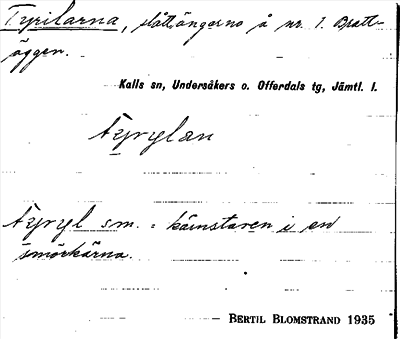 Tyrilarna, slåttängerna å nr. 1. Bratt-
äggen.
Kalls sn, Undersåkers o. Offerdals tg, Jämtl. l.
tyrylan
tyryl sm. = kärnstaven i en
smörkärna.
BERTIL BLOMSTRAND 1935